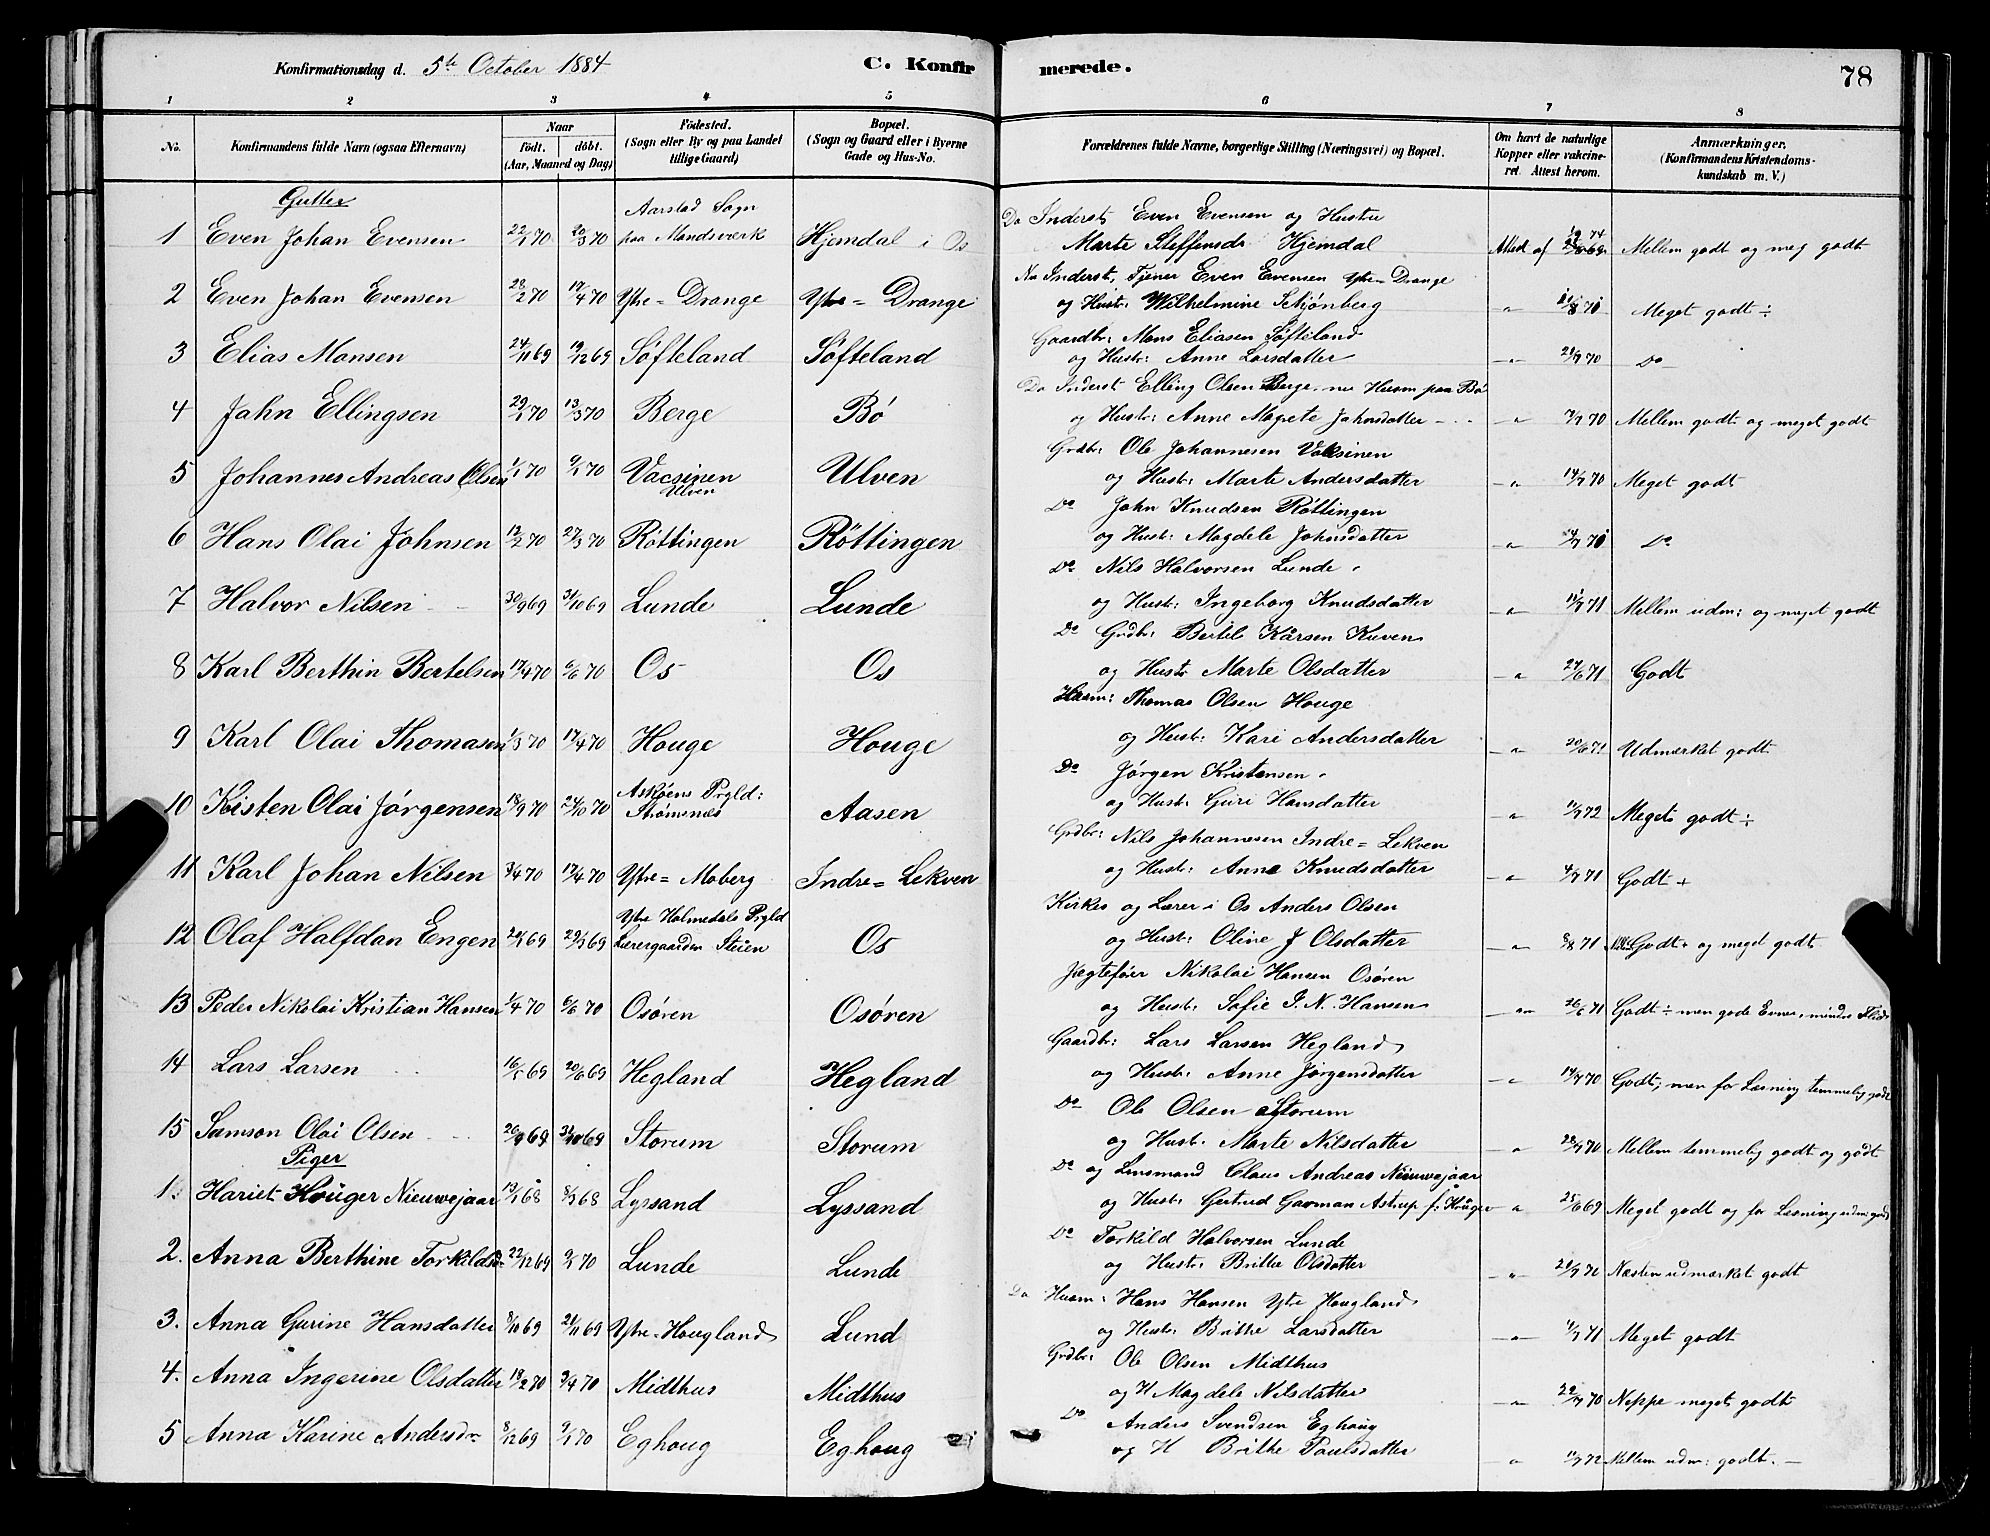 Konfirmationsdag d. 5te October 1884 C. Konfirmerede. 78
1 2 3 4 5 6 7 8
No. Konfirmandens fulde Navn (ogsaa Efternavn) Naar födt. döbt. (Aar, Maaned og Dag) Födested. (Sogn eller By og paa Landet tillige Gaard) Bopæl. (Sogn og Gaard eller i Byerne Gade og Hus-No. Forældrenes fulde Navne, borgerlige Stilling (Næringsvei) og Bopæl. Om havt de naturlige Kopper eller vakcineret. Attest herom. Anmærkninger. (Konfirmandens Kristendomskundskab m. V.)
Gutter
1 Even Johan Evensen 22/1 70 20/3 70 Aarstad Sogn paa Mandsværk Hjemdal i Os Do Inderst Even Evensen og Hustru
Marte Steffensdr Hjemdal Attest af Mellem godt og meg godt
2 Even Johan Evensen 28/2 70 17/4 70 Ytre=Drange Ytre=Drange No Inderst, Tjener Even Evensen Ytre=Drange
og Hust: Wilhelmine Schjønberg Meget godt ÷
3 Elias Monsen 24/11 69 19/12 69 Söfteland Söfteland Gaardbr: Mons Eliasen Söfteland
og Hustr: Anne Larsdatter 29/7 70 Do
4 Jahn Ellingsen 29/1 70 13/3 70 Berge Bö Do Inderst Elling Olsen Berge, nu Husm paa Bö
og Hustr: Anne Magrete Jahnsdatter 7/7 70 Mellem godt og meget godt
5 Johannes Andreas Olsen 1/1 70 9/1 70 Vacsinen Ulven Ulven Grdbr: Ole Johannesen Vaksinen
og Hust: Marte Andersdatter 14/7 70 Meget godt
6 Hans Olai Johnsen 12/2 70 27/3 70 Röttingen Röttingen Do John Knudsen Röttingen
og Hust: Magdele Johnsdatter Do
7 Halvor Nilsen 30/9 69 31/10 69 Lunde Lunde Do Nils Halvorsen Lunde
og Hust: Ingeborg Knudsdatter 11/7 71 Mellem udm: og meget godt
8 Karl Berthin Bertelsen 17/4 70 6/6 70 Os Os Do Grdbr: Bertel Kårsen Kuven
og Hustr Marte Olsdatter 27/6 71 Godt
9 Karl Olai Thomasen 1/3 70 17/4 70 Houge Houge Husm: Thomas Olsen Houge
og Hust: Kari Andersdatter 20/6 71 Udmærket godt
10 Kristen Olai Jörgensen 18/9 70 24/10 70 Asköens Prgld: Strömsnes Aasen Do Jörgen Kristensen
og Hust: Guri Hansdatter 11/7 72 Meget godt ÷
11 Karl Johan Nilsen 3/4 70 17/4 70 Ytre=Moberg Indre=Lekven Grdbr: Nils Johannesen Indre=Lekven
og Hust: Anna Knudsdatter 4/7 71 Godt +
12 Olaf Halfdan Engen 69 69 Ytre Holmedals Prgld Lærergaarden Steien Os Kirkes og Lærer i Os Anders Olsen
og Hust: Oline J Olsdatter 8/8 71 Godt og meget godt
13 Peder Nikolai Kristian Hansen 1/4 70 6/6 70 Osören Osören Jægteföir Nikolai Hansen Osören
og Hust: Sofie J. N. Hansen 26/6 71 Godt ÷ men gode Evner, mindre Flid
14 Lars Larsen 16/5 69 20/6 69 Hegland Hegland Gaardbr: Lars Larsen Hegland
og Hust: Anne Jörgensdatter 14/7 70 Godt; men for Læsning temmelig godt
15 Samson Olai Olsen 26/9 69 31/10 69 Storum Storum Do Ole Olsen Storum
og Hust: Marte Nilsdatter 28/7 70 Mellem temmelig godt og godt
Piger
1. Hariet Houger Nieuwejaar 19/1 68 8/3 68 Lyssand Lyssand Do og Lensmand Claus Andreas Nieuwejaar
og Hust: Gertrud Garman Astrup f: Houger 25/6 69 Meget godt og for Læsning udm: godt
2. Anna Berthine Torkildsd 22/12 69 9/1 70 Lunde Lunde Do Torkild Halvorsen Lunde
og Hustr: Brithe Olsdatter 21/7 70 Næsten udmærket godt
3. Anna Gurine Hansdatter 8/10 69 21/11 69 Ytre=Hougland Lund Do Husm: Hans Hansen Ytre Hougland
og Hust: Brithe Larsdatter 4/7 71 Meget godt
4. Anna Ingerine Olsdatter 19/2 70 3/4 70 Midthus Midthus Grdbr: Ole Olsen Midthus
og H Magdele Nilsdatter 22/7 70 Neppe meget godt
5 Anna Karine Andersdr 8/12 69 9/1 70 Eghoug Eghoug Do Anders Svendsen Eghoug
og H Brithe Paulsdatter 11/7 72 Mellem udm: godt.